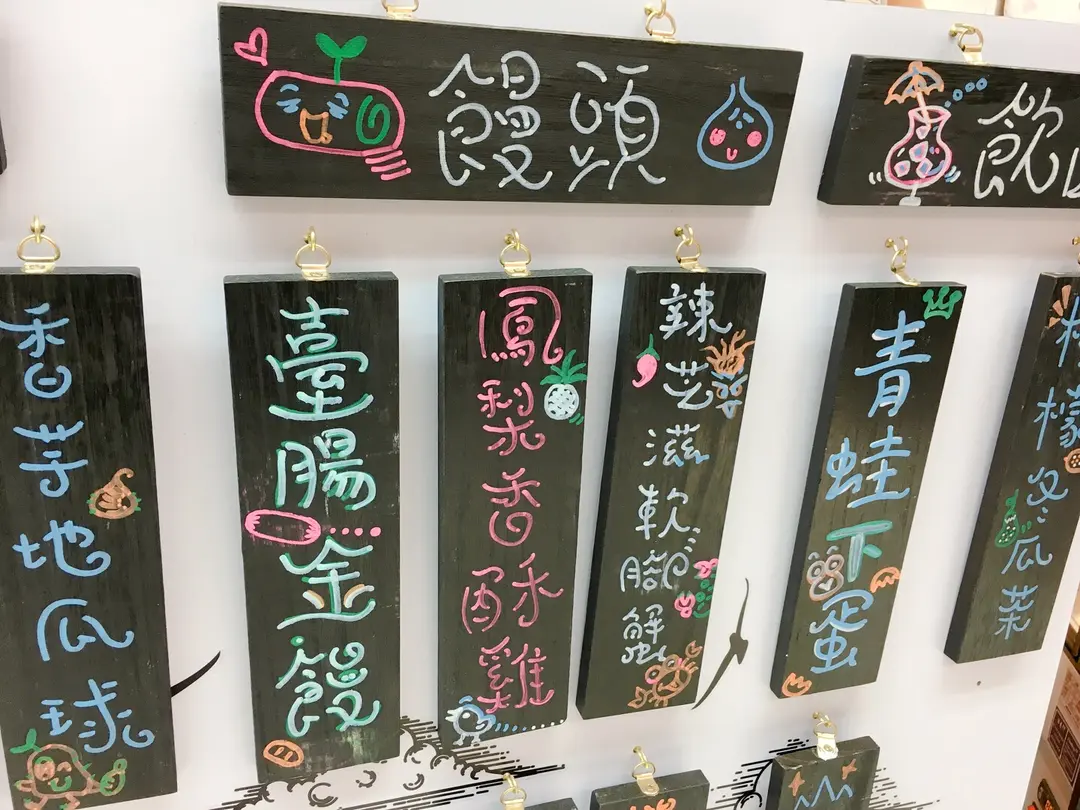 饅頭
飲
香芋地瓜球
臺腸金饅
鳳梨香酥雞
辣芝滋軟腳蟹
青蛙下蛋
檸檬冬瓜菜